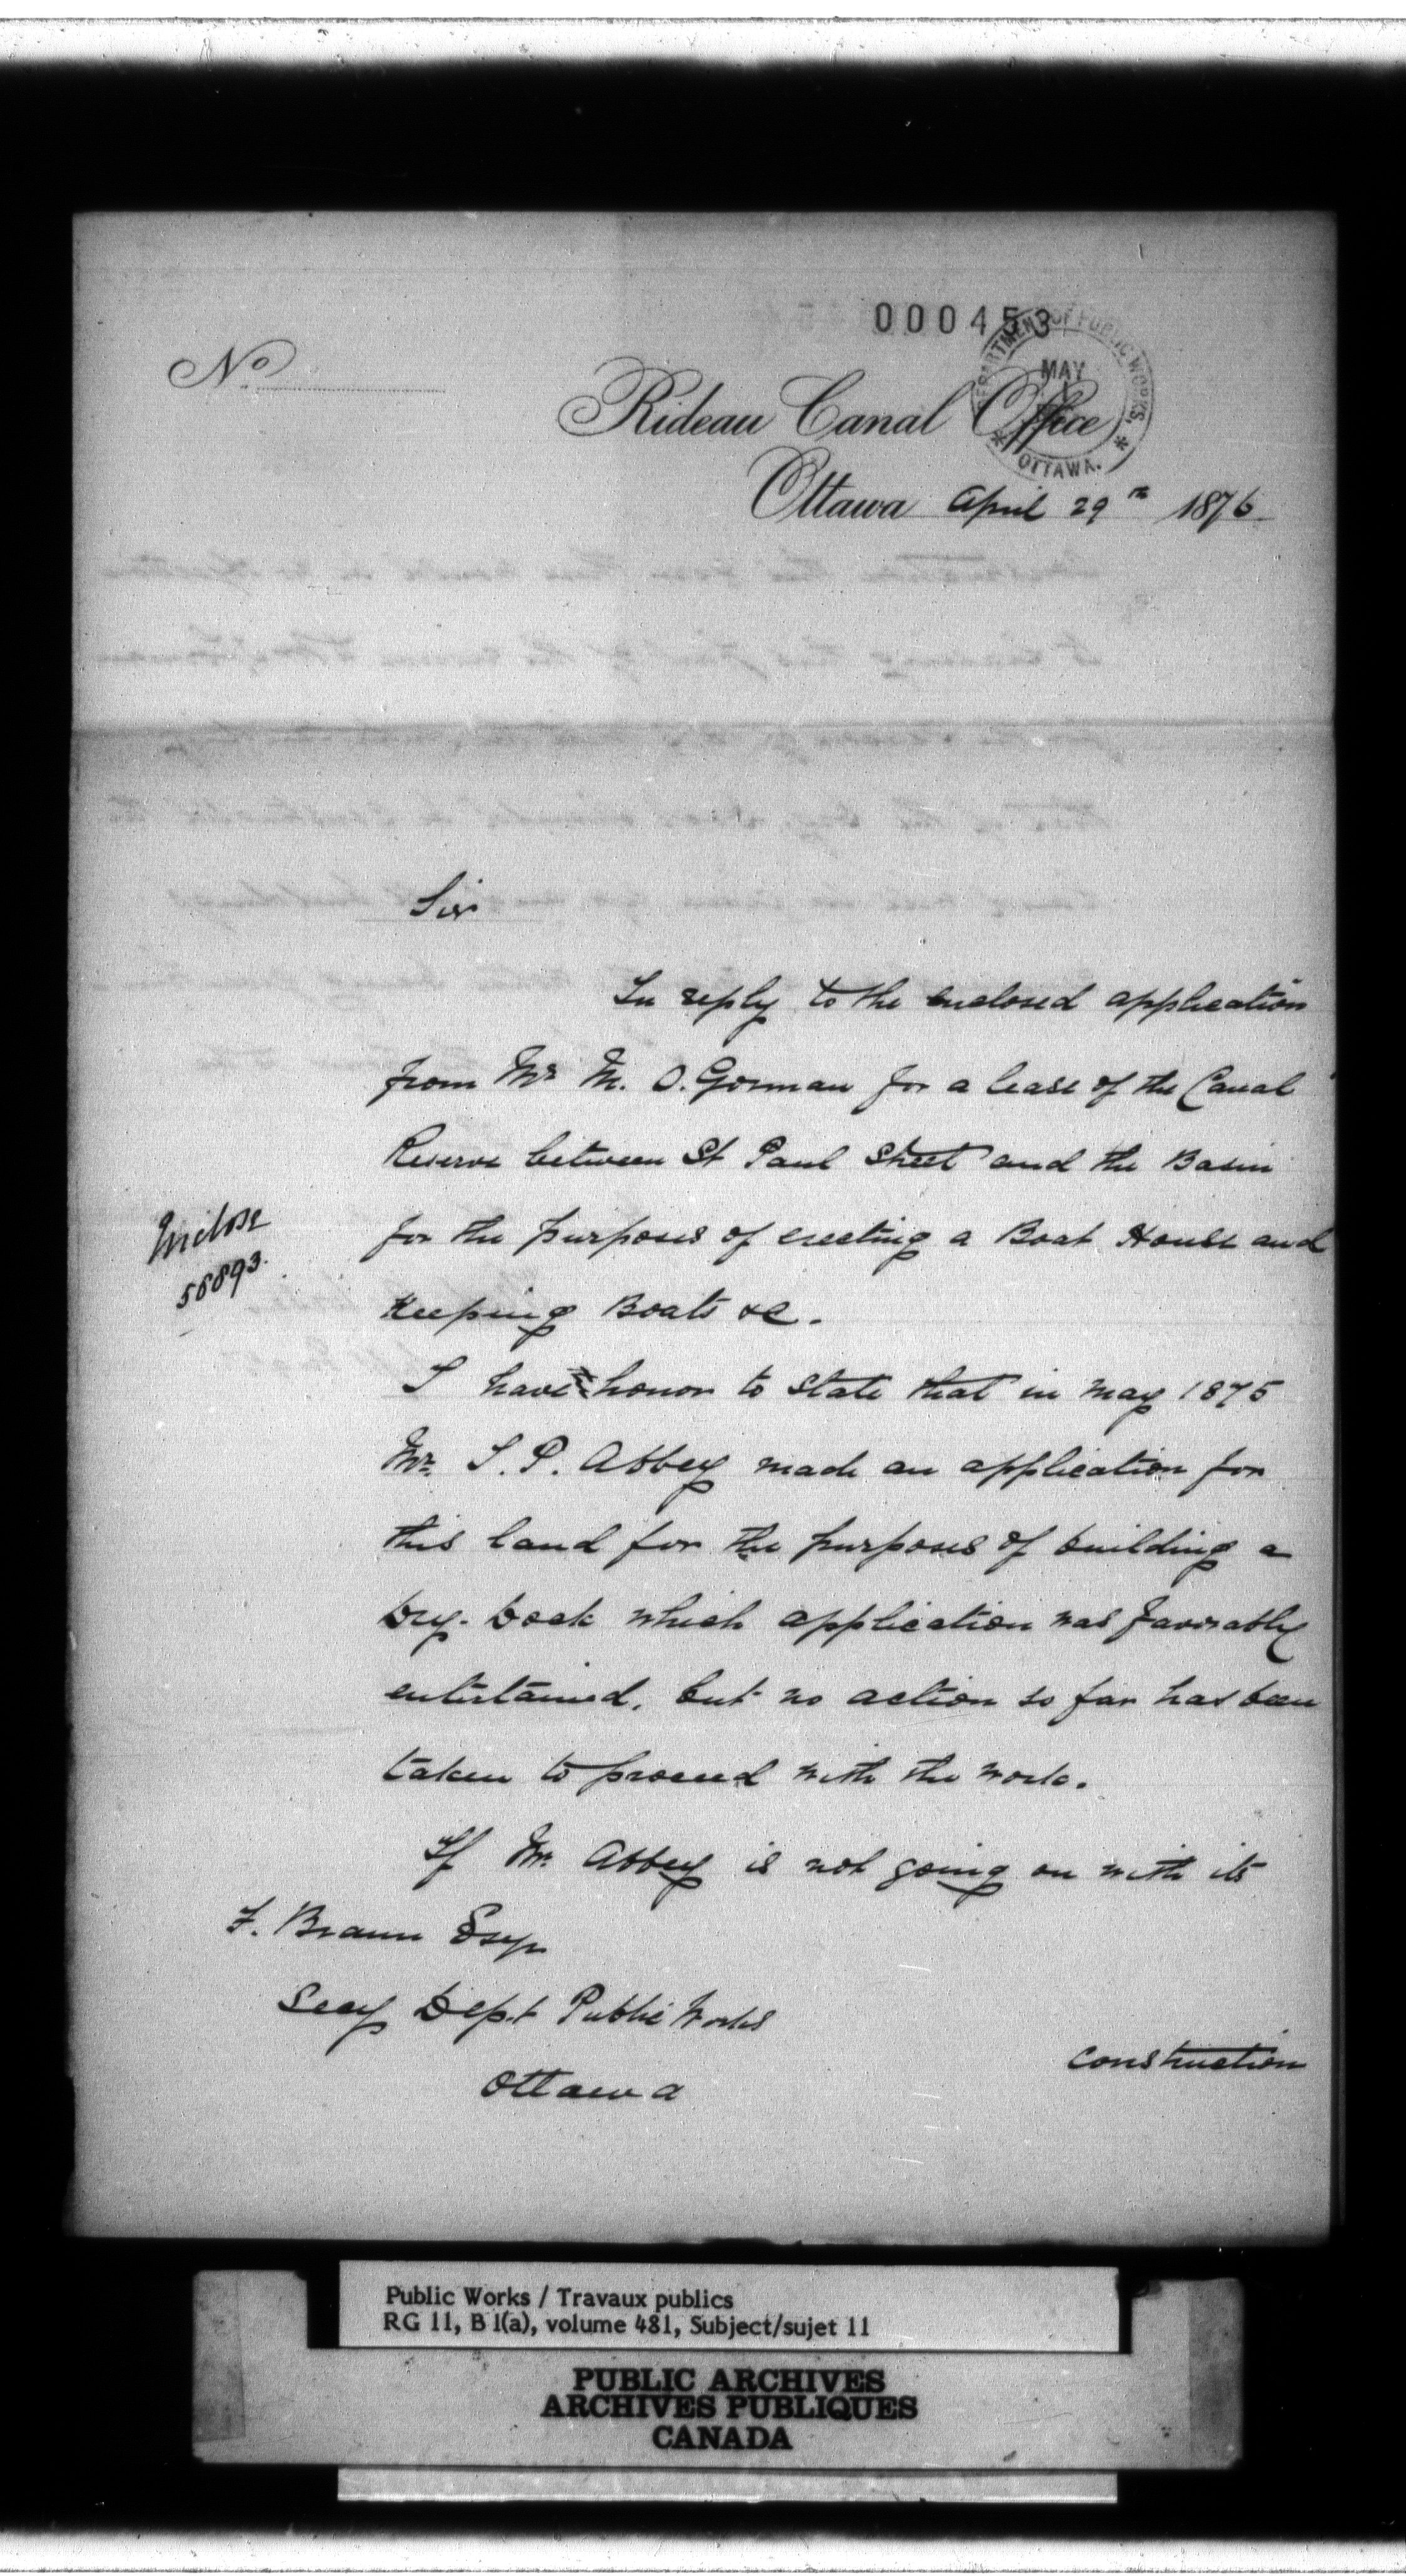 000453
DEPARTMENT OF PUBLIC WORKS,
MAY
1
* OTTAWA. *
No
Rideau Canal Office
Ottawa April 29th 1876
Sir
In reply to the enclosed application
from Mr M. O. Gorman for a lease of the Canal
Reserve between St Paul Street and the Basin
for the purposes of erecting a Boat House and
Keeping Boats &c.
Inclose
58893.
I have the honor to state that in may 1875
Mr. S. P. Abbey made an application for
this land for the purposes of building a
Dry. Dock which application was favorably
entertained, but no action so far has been
taken to proceed with the work.
If Mr. Abbey is not going on with its
F. Braun Esqr
Secy Dept Public Works
Ottawa
construction
Public Works / Travaux publics
RG 11, B 1(a), volume 481, Subject/sujet 11
PUBLIC ARCHIVES
ARCHIVES PUBLIQUES
CANADA